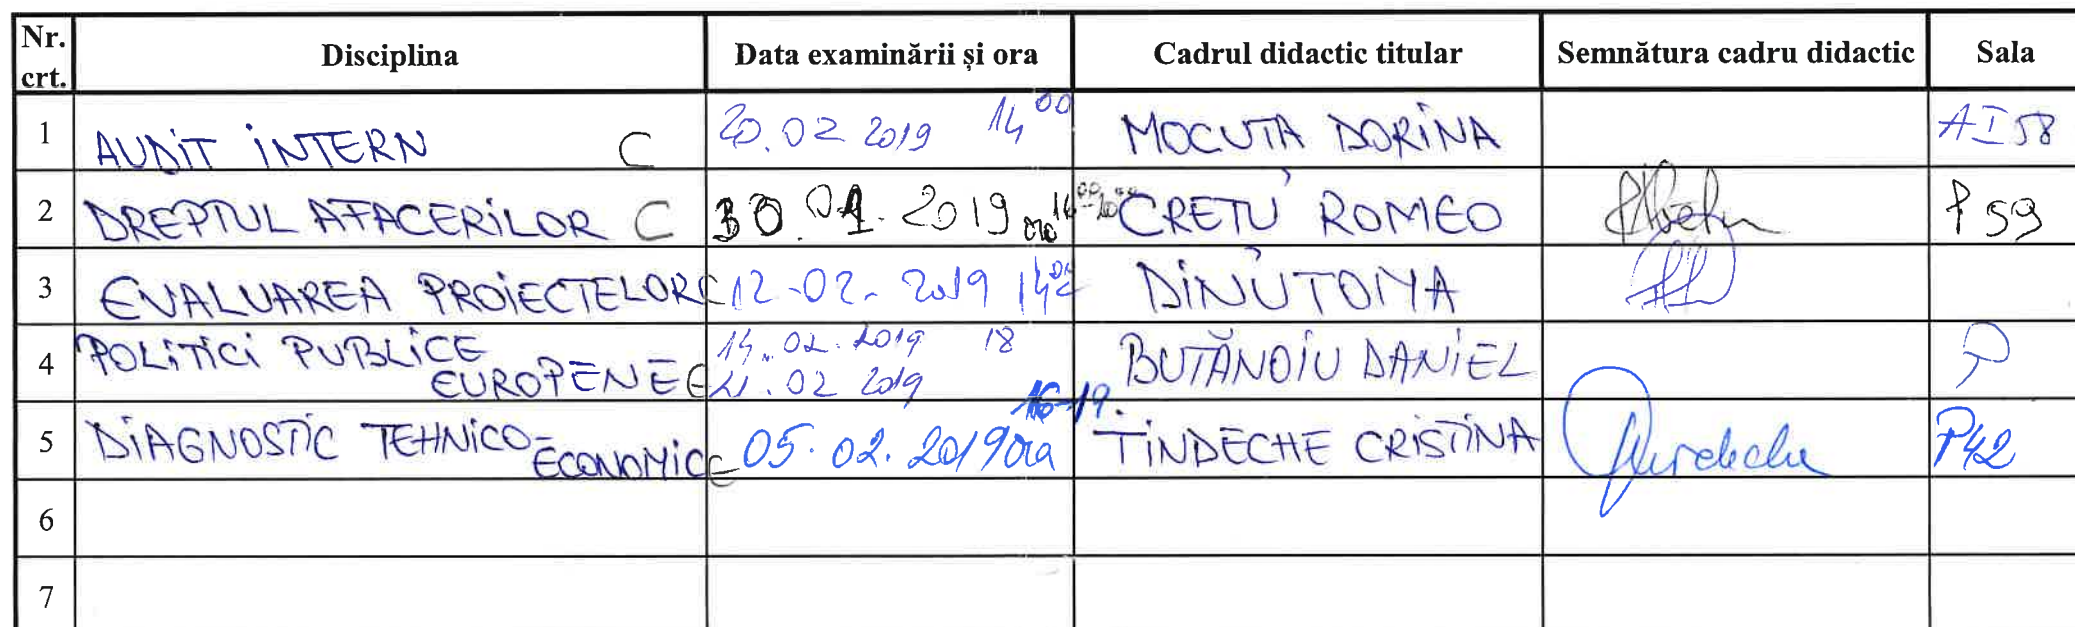 Nr. crt. Disciplina Data examinării și ora Cadrul didactic titular Semnătura cadru didactic Sala
1 AUDIT INTERN C 20.02 2019 14 00 MOCUTA DORINA AI 58
2 DREPTUL AFACERILOR C 30.01.2019 ora CRETU ROMEO P 59
3 EVALUAREA PROIECTELOR C 12-02-2019 14 DINU TOMA
4 POLITICI PUBLICE 14.02.2019 18 BUTĂNOIU DANIEL P
EUROPENE C 21.02 2019
5 DIAGNOSTIC TEHNICO- 05.02.2019 ora 16-19. TINDECHE CRISTINA P42
ECONOMIC C
6
7